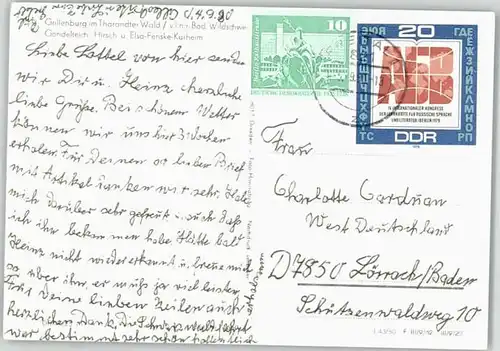 Grillenburg im Tharandter Wald / v. l. n. r.: Bad, Wildschwein,
Gondelteich, Hirsch u. Elsa-Fenske-Kurheim
4.9.80
Liebe Lottel von hier senden
wir Dir u. Heinz herzliche
liebe Grüße. Bei schönem Wetter
können wir uns hier 3 Wochen
erholen. Für Deinen so lieben Brief
mit Artikel danken wir sehr. Habe
mich darüber sehr gefreut auch daß
ich ihn bekommen habe. Hätte bald
Heinz nicht wiedererkannt u. freue mich
so über ihn, er muß ja viel leisten
Für Deine lieben Zeilen auch
herzlichen Dank. Die Schwarzwaldfahrt
war bestimmt sehr schön
10
DEUTSCHE DEMOKRATISCHE REPUBLIK
20
IV. INTERNATIONALER KONGRESS
DER LEHRKRÄFTE FÜR RUSSISCHE SPRACHE
UND LITERATUR · BERLIN 1979
DDR
Frau
Charlotte Carduan
West Deutschland
D7850 Lörrach/Baden
Schützenwaldweg 10